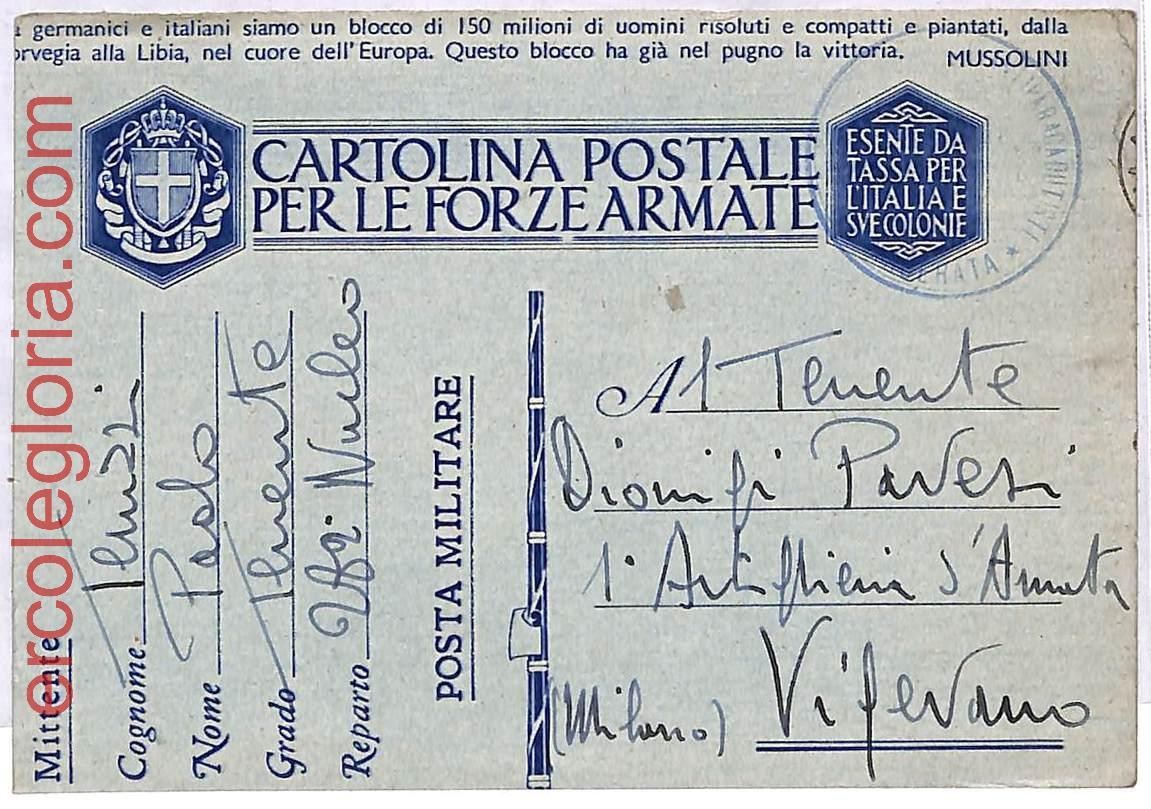 germanici e italiani siamo un blocco di 150 milioni di uomini risoluti e compatti e piantati, dalla
orvegia alla Libia, nel cuore dell'Europa. Questo blocco ha già nel pugno la vittoria.
MUSSOLINI
CARTOLINA POSTALE
PER LE FORZE ARMATE
ESENTE DA
TASSA PER
L'ITALIA E
SVE COLONIE
Mittente
Cognome
Nome Paolo
Grado Tenente
Reparto Uff. Nucleo
POSTA MILITARE
Al Tenente
Dionigi Pavesi
1° Artiglieria d'Armata
Vigevano
(Milano)
ercolegloria.com